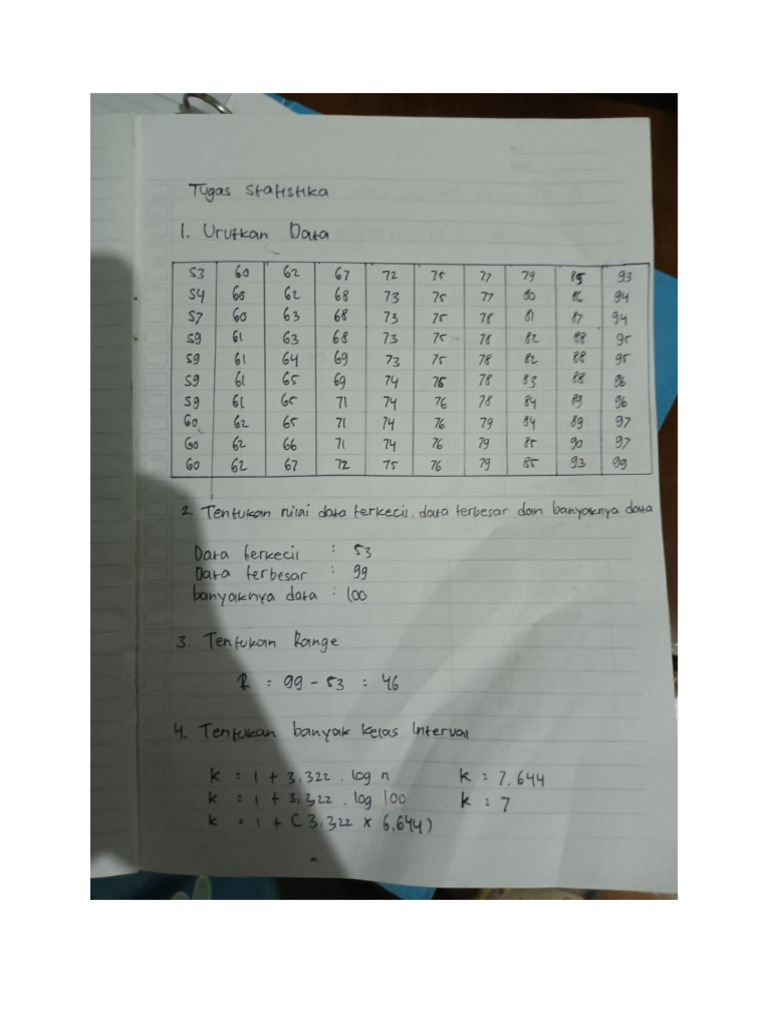 Tugas Statistika
1. Urutkan Data
53 60 62 67 72 75 77 79 85 93
54 60 62 68 73 75 77 80 86 94
57 60 63 68 73 75 78 81 87 94
59 61 63 68 73 75 78 82 88 95
59 61 64 69 73 75 78 82 88 95
59 61 65 69 74 75 78 83 88 96
59 61 65 71 74 76 78 84 89 96
60 62 65 71 74 76 79 84 89 97
60 62 66 71 74 76 79 85 90 97
60 62 67 72 75 76 79 85 93 99
2. Tentukan nilai data terkecil, data terbesar dan banyaknya data
Data terkecil : 53
Data terbesar : 99
banyaknya data : 100
3. Tentukan Range
R = 99 - 53 = 46
4. Tentukan banyak kelas Interval
k = 1 + 3,322 . log n k = 7.644
k = 1 + 3,322 . log 100 k = 7
k = 1 + (3,322 x 6,644)